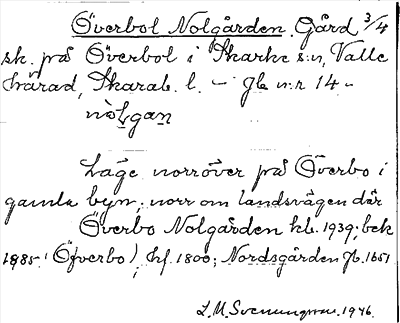 Överbol Nolgården. Gård 3/4
sk. på Överbol i Skarke s:n, Valle
härad, Skarab. l. – Jb n:r 14 –
nòlgan
Läge norröver på Överbo i
gamla byn, norr om landsvägen där
Överbo Nolgården hb. 1939; bek
1985. (Öfverbo), hf. 1800; Nordsgården Jb. 1651
L.M. Svenungsson. 1946.